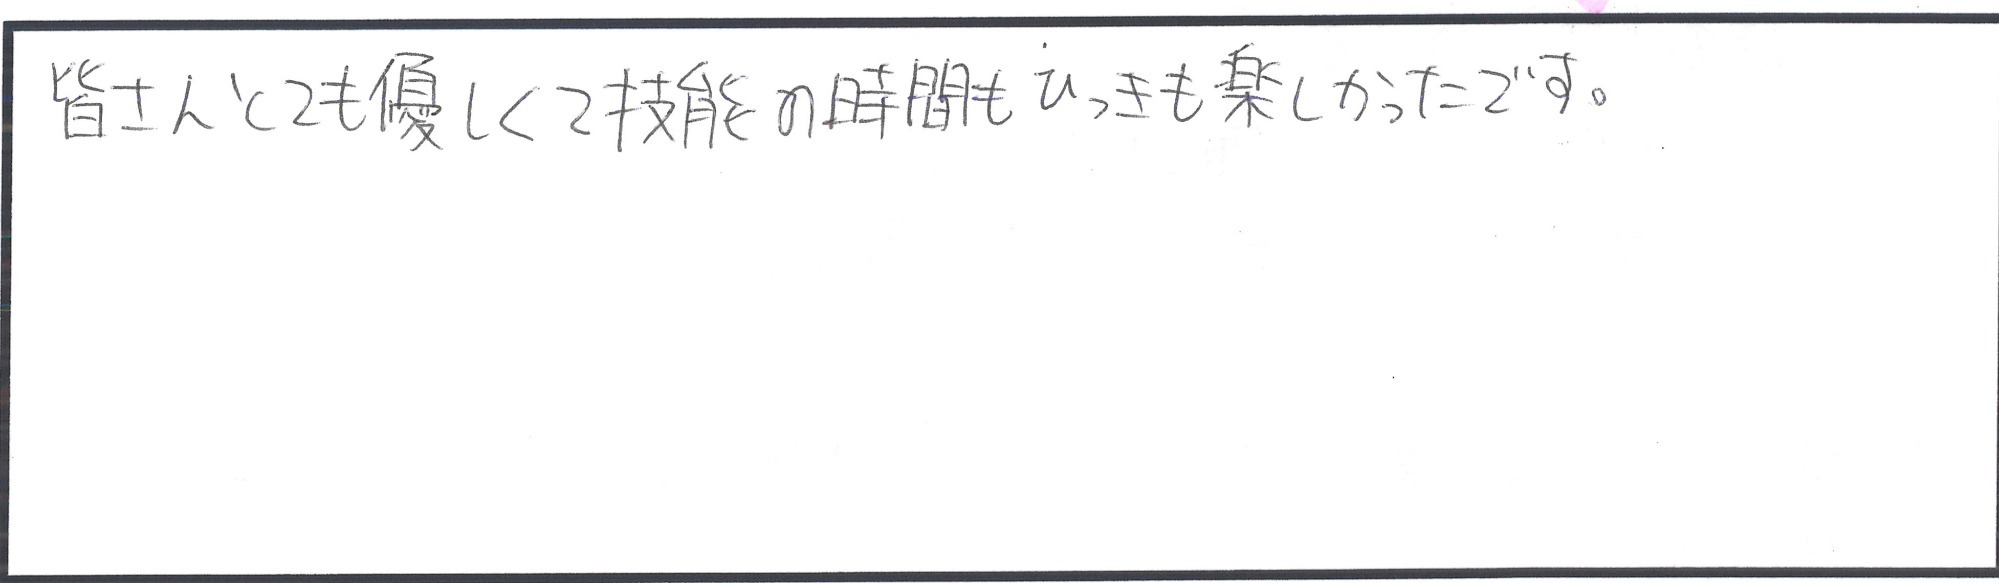 皆さんとても優しくて技能の時間もひっきも楽しかったです。